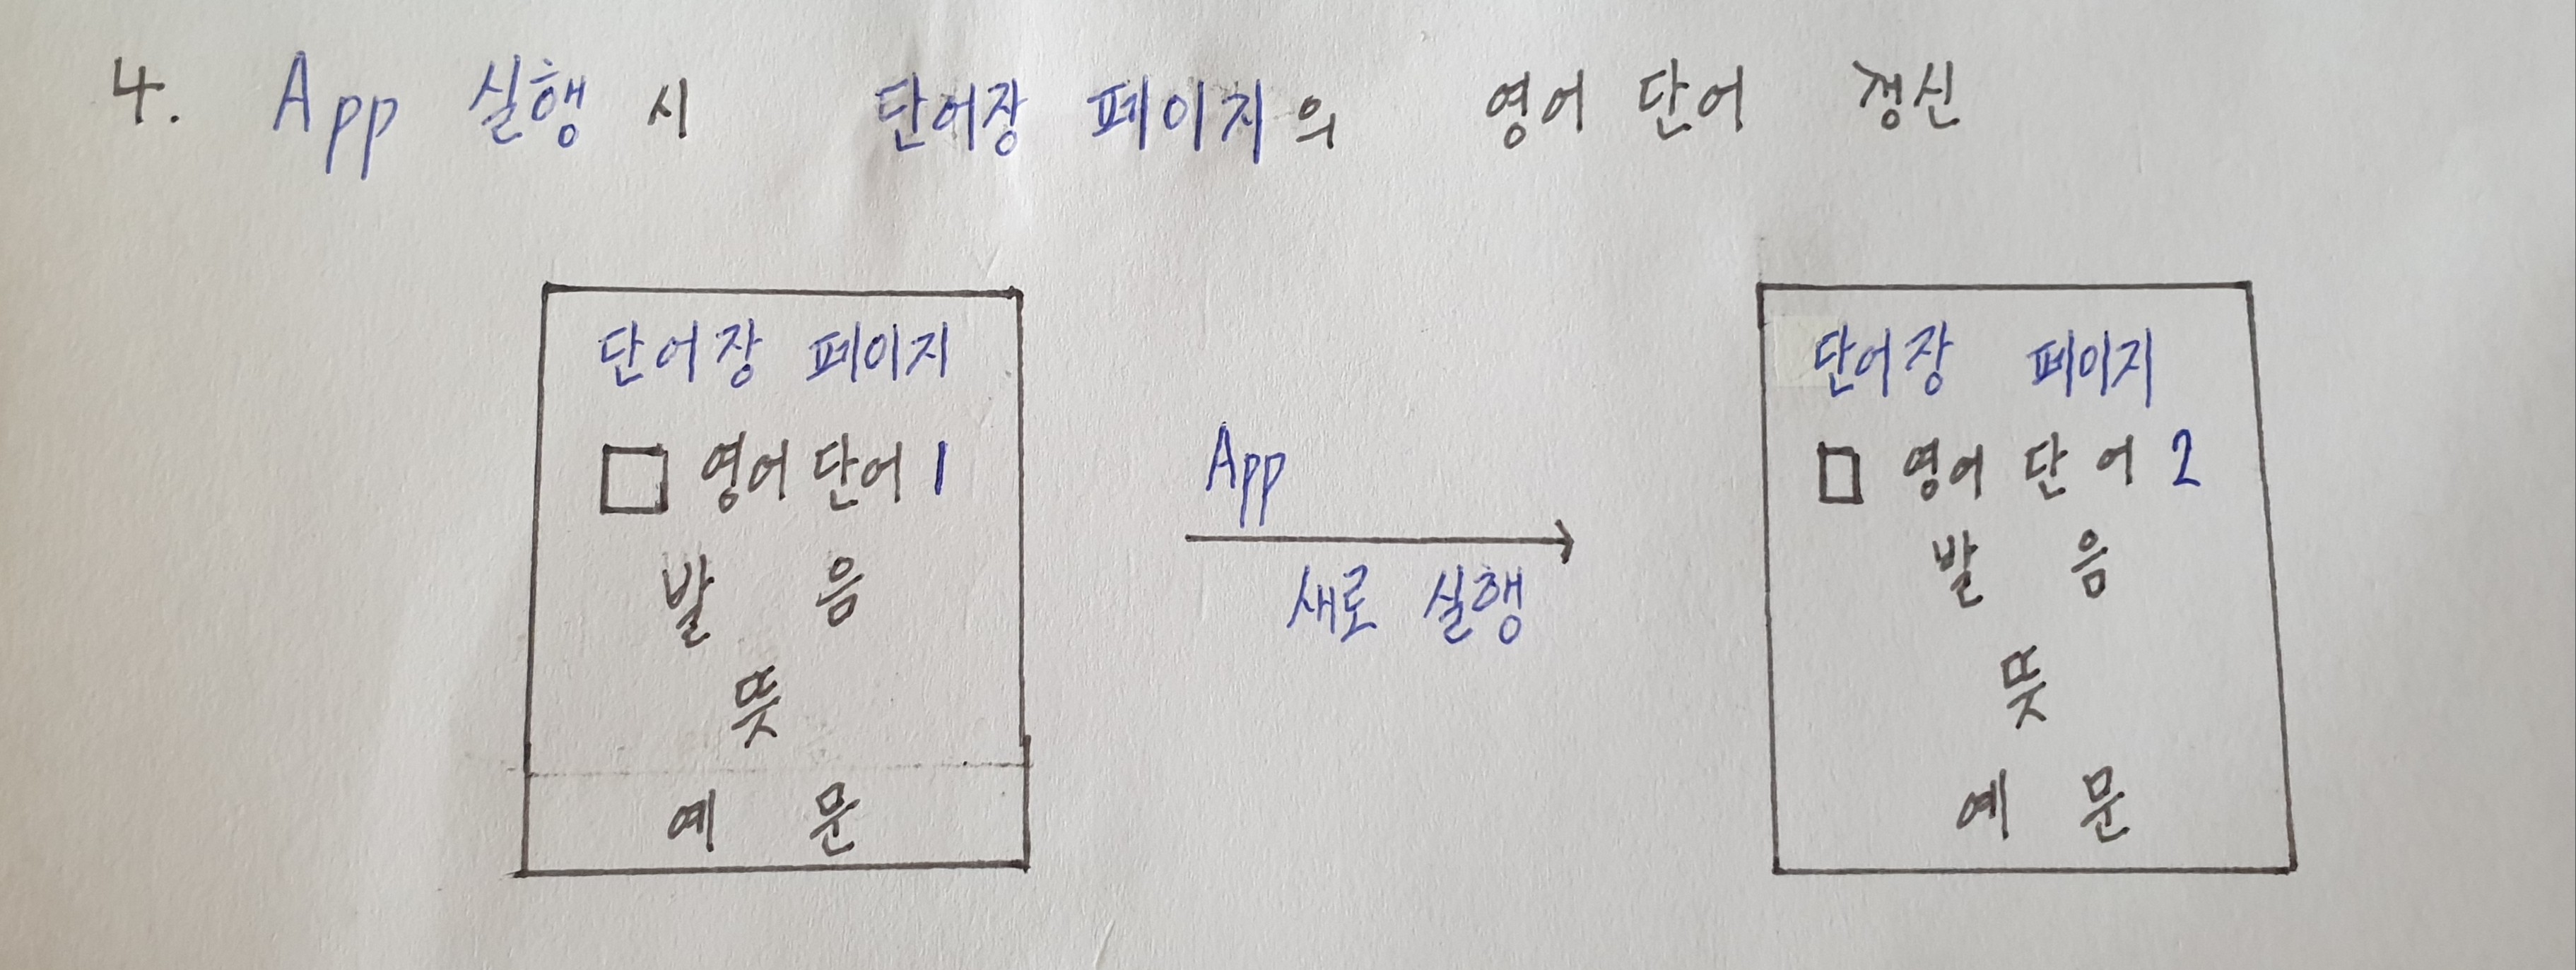 4. App 실행 시 단어장 페이지의 영어 단어 갱신
단어장 페이지
□ 영어 단어 1
발 음
뜻
예 문
App
새로 실행
단어장 페이지
□ 영어 단어 2
발 음
뜻
예 문